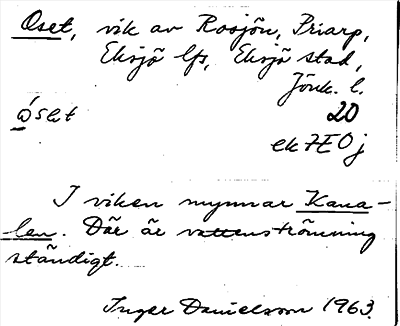 Oset, vik av Rosjön, Priarp,
Eksjö lfs, Eksjö stad,
Jönk. l.
ọ́set 20
ek 7E0j
I viken mynnar Kana-
len. Där är vattenströmning
ständigt.
Inger Danielsson 1963.